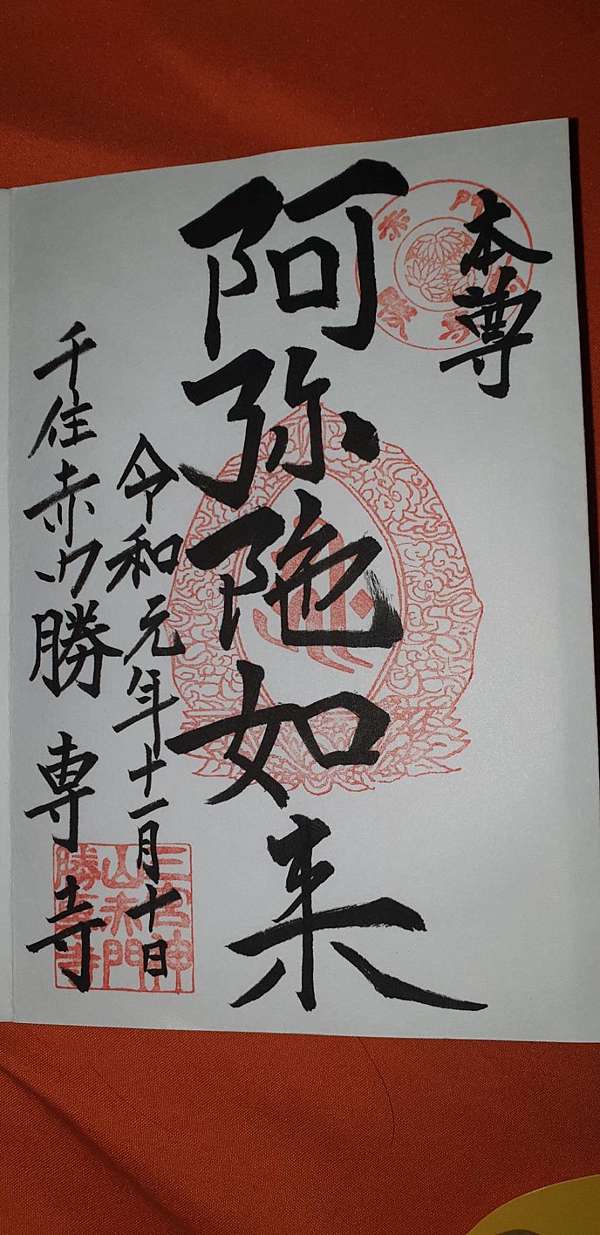 本尊
阿弥陀如来
令和元年十一月十日
千住赤門勝専寺